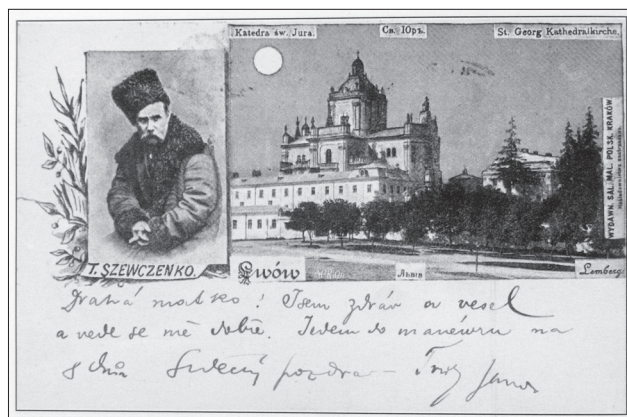 Katedra św. Jura.
Св. Юръ.
St. Georg Kathedralkirche.
WYDAWN. SAL. MAL. POLSK. KRAKÓW
T. SZEWCZENKO.
Lwów
Львів
Lemberg
Drahá matko! Jsem zdráv a vesel
a vede se mě dobře. Jedem do manévru na
8 dnů Srdečný pozdrav Tvůj